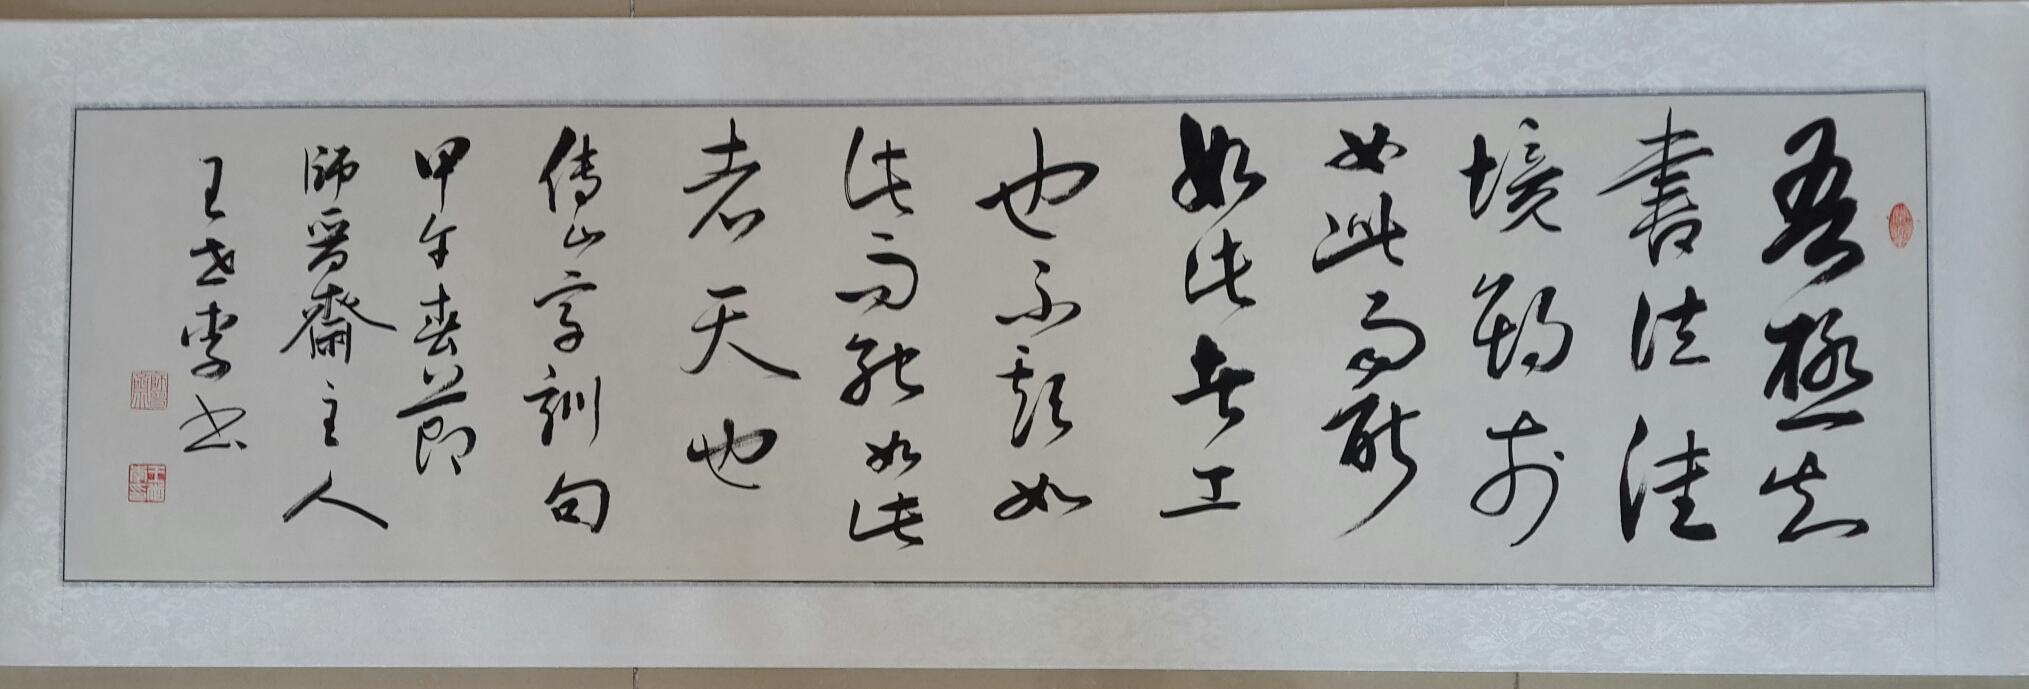 吾極知
書法佳
境期於
如此而能
如此者工
也不期如
此而能如此
者天也
傅山字訓句
甲午春節
師晉齋主人
王世书